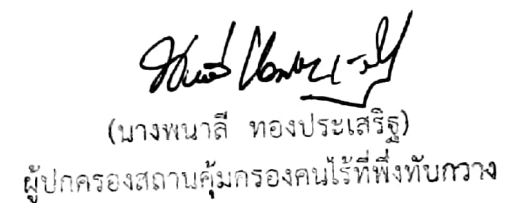 (นางพนาลี ทองประเสริฐ)
ผู้ปกครองสถานคุ้มครองคนไร้ที่พึ่งทับกวาง